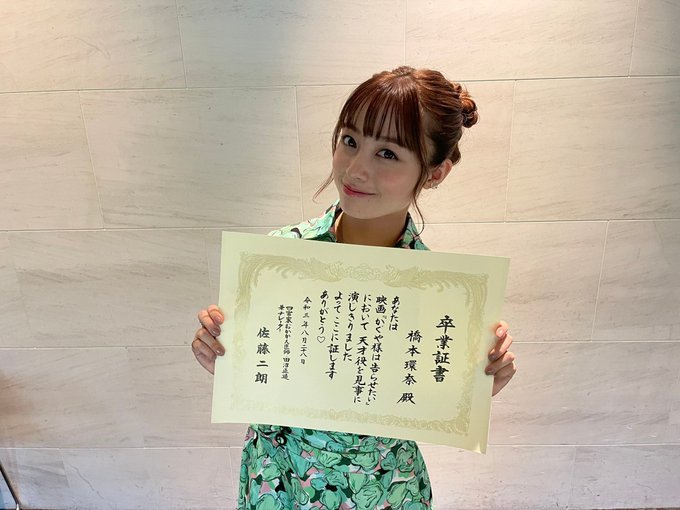 卒業証書
橋本環奈 殿
あなたは
映画『かぐや様は告らせたい』
において 天才役を見事に
演じきりました
よって ここに証します
ありがとう♡
令和三年八月二十八日
四宮家おかかえ医師 田沼正造
兼ナレーター
佐藤二朗